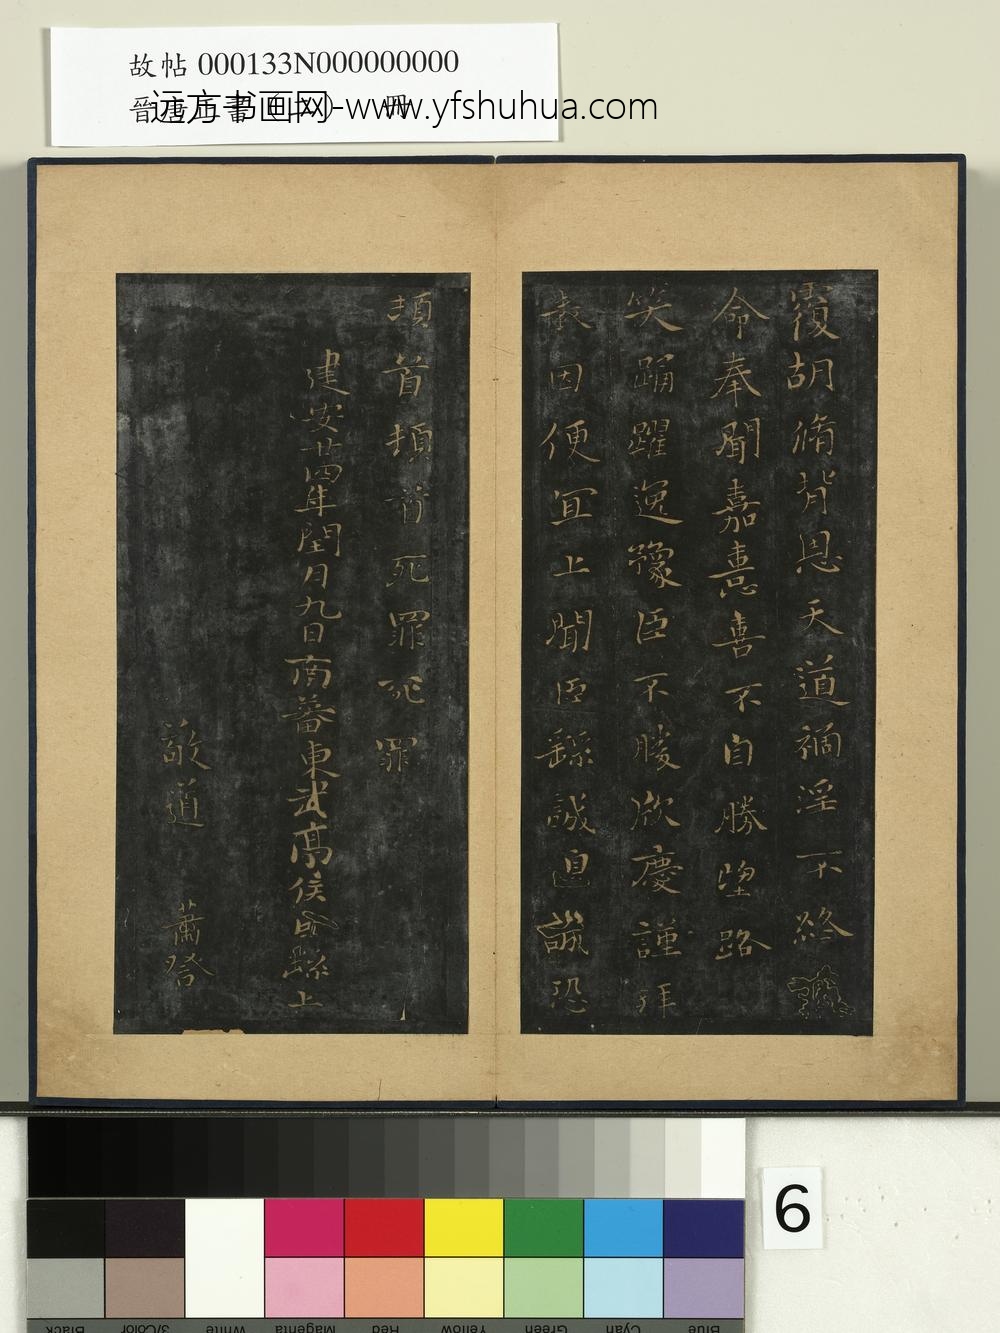 故帖000133N000000000
晉唐
远方书画网-www.yfshuhua.com
冊
覆胡脩背恩天道禍淫不終
命奉聞嘉憙喜不自勝望路
笑踊躍逸豫臣不勝欣慶謹拜
表因便宜上聞臣繇誠惶誠恐
頓首頓首死罪死罪
建安廿四年閏月九日南蕃東武亭侯臣繇上
敬道 蕭登
6
Black
3/Color
White
Magenta
Red
Yellow
Green
Cyan
Blue